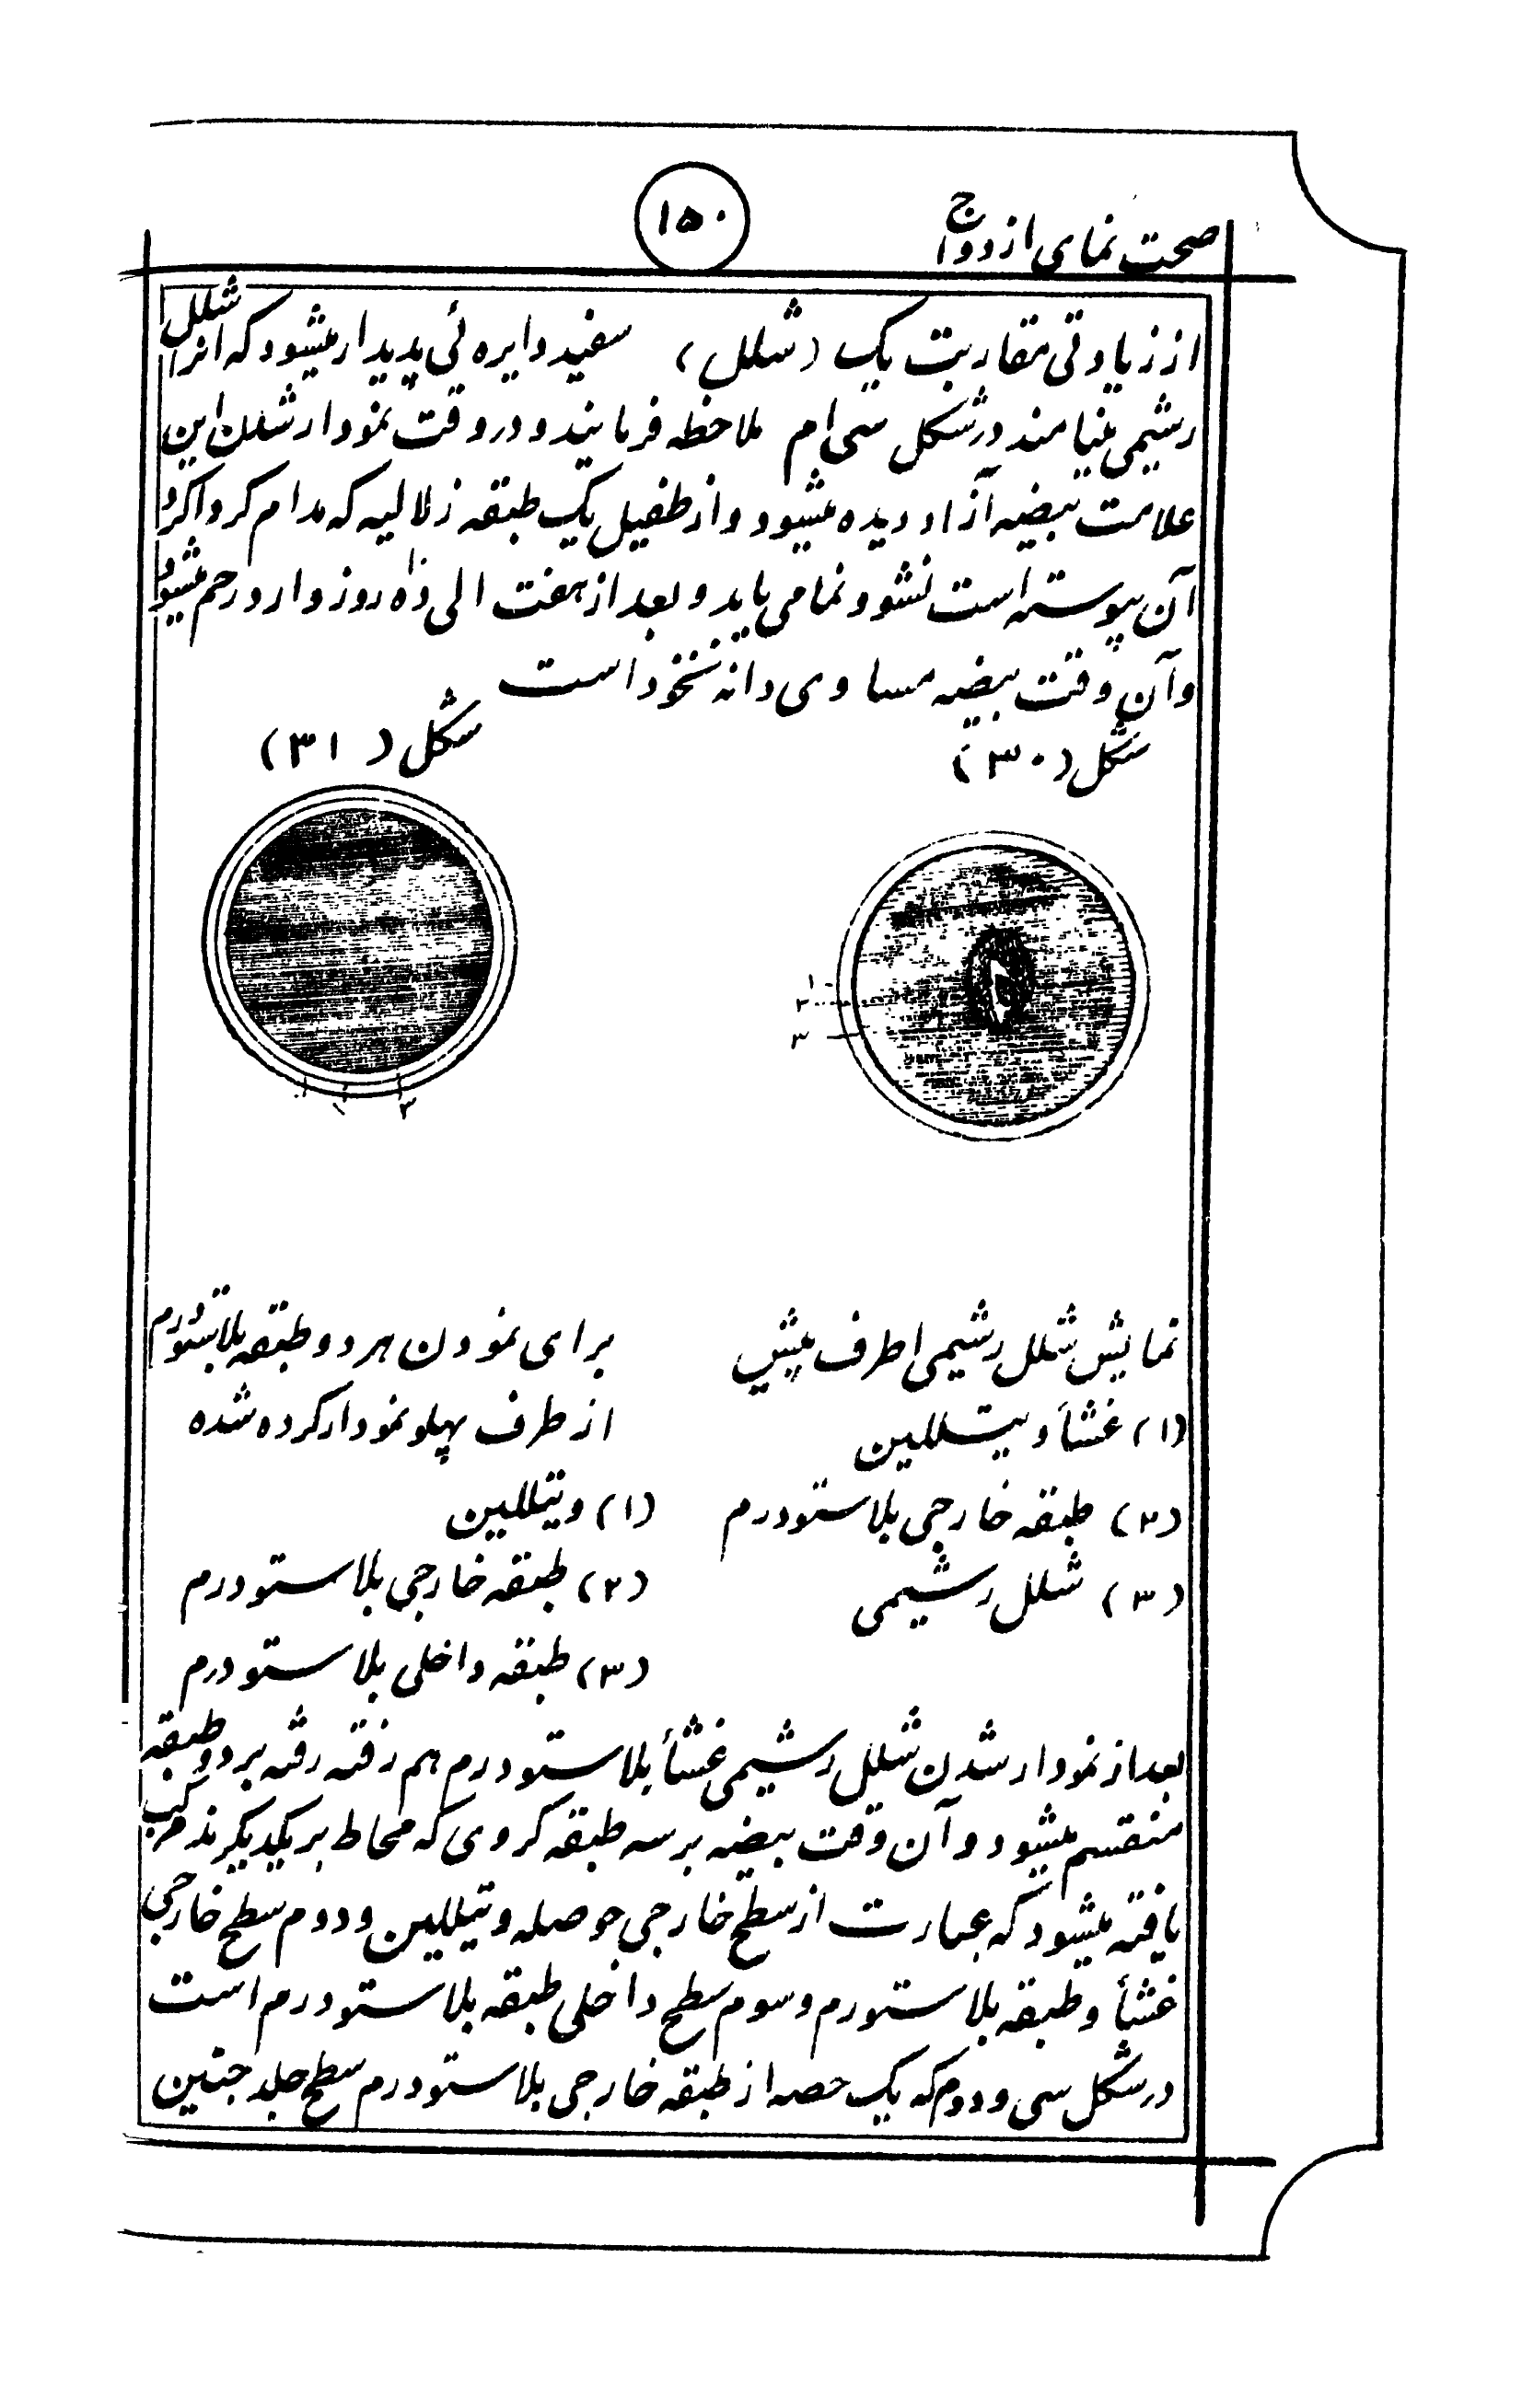 صحت نمای ازدواج
۱۵۰
از زیادتی مقاربت یک (شلل) سفید دایره ئی پدیدار میشود که انرا شلل
رشیمی مینامند در شکل سی ام ملاحظه فرمایند و در وقت نمودار شدن این
علامت بیضه آزاد دیده میشود و از طفیل یک طبقه زلالیه که مدام گرداگرد
آن پیوسته است نشو و نما می یابد و بعد از هفت الی ده روز وارد رحم میشود
و آن وقت بیضه مساوی دانه نخود است
شکل (۳۰)
۱
۲
۳
نمایش شلل رشیمی اطرف پیش
(۱) غشأ ویتللین
(۲) طبقه خارجی بلاستودرم
(۳) شلل رشیمی
شکل (۳۱)
۱
۲
۳
برای نمودن هر دو طبقه بلاستودرم
از طرف پهلو نمودار کرده شده
(۱) ویتللین
(۲) طبقه خارجی بلاستودرم
(۳) طبقه داخلی بلاستودرم
بعد از نمودار شدن شلل رشیمی غشأ بلاستودرم هم رفته رفته بر دو طبقه
منقسم میشود و آن وقت بیضه بر سه طبقه کروی که محاط بر یکدیگرند مرکب
یافته میشود که عبارت از سطح خارجی حوصله ویتللین و دوم سطح خارجی
غشأ و طبقه بلاستورم و سوم سطح داخلی طبقه بلاستودرم است
در شکل سی و دوم که یک حصه از طبقه خارجی بلاستودرم سطح جلد جنین